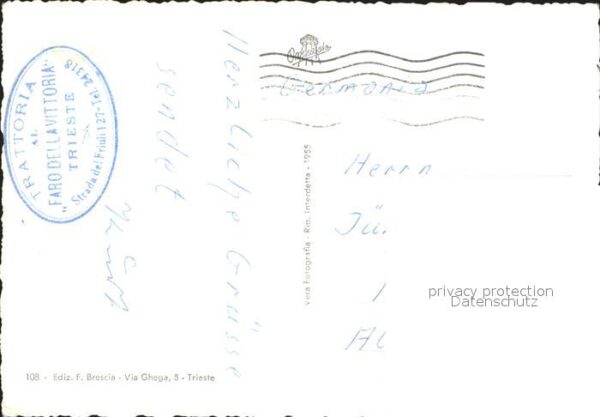 TRATTORIA
AL
"FARO DELLA VITTORIA"
TRIESTE
Strada del Friuli 127-Tel. 24318
Herzliche Grüsse
sendet
Germania
Herrn
Vera Fotografia - Rip. Interdetta - 1955
privacy protection
Datenschutz
108 - Ediz. F. Brescia - Via Ghega, 5 - Trieste